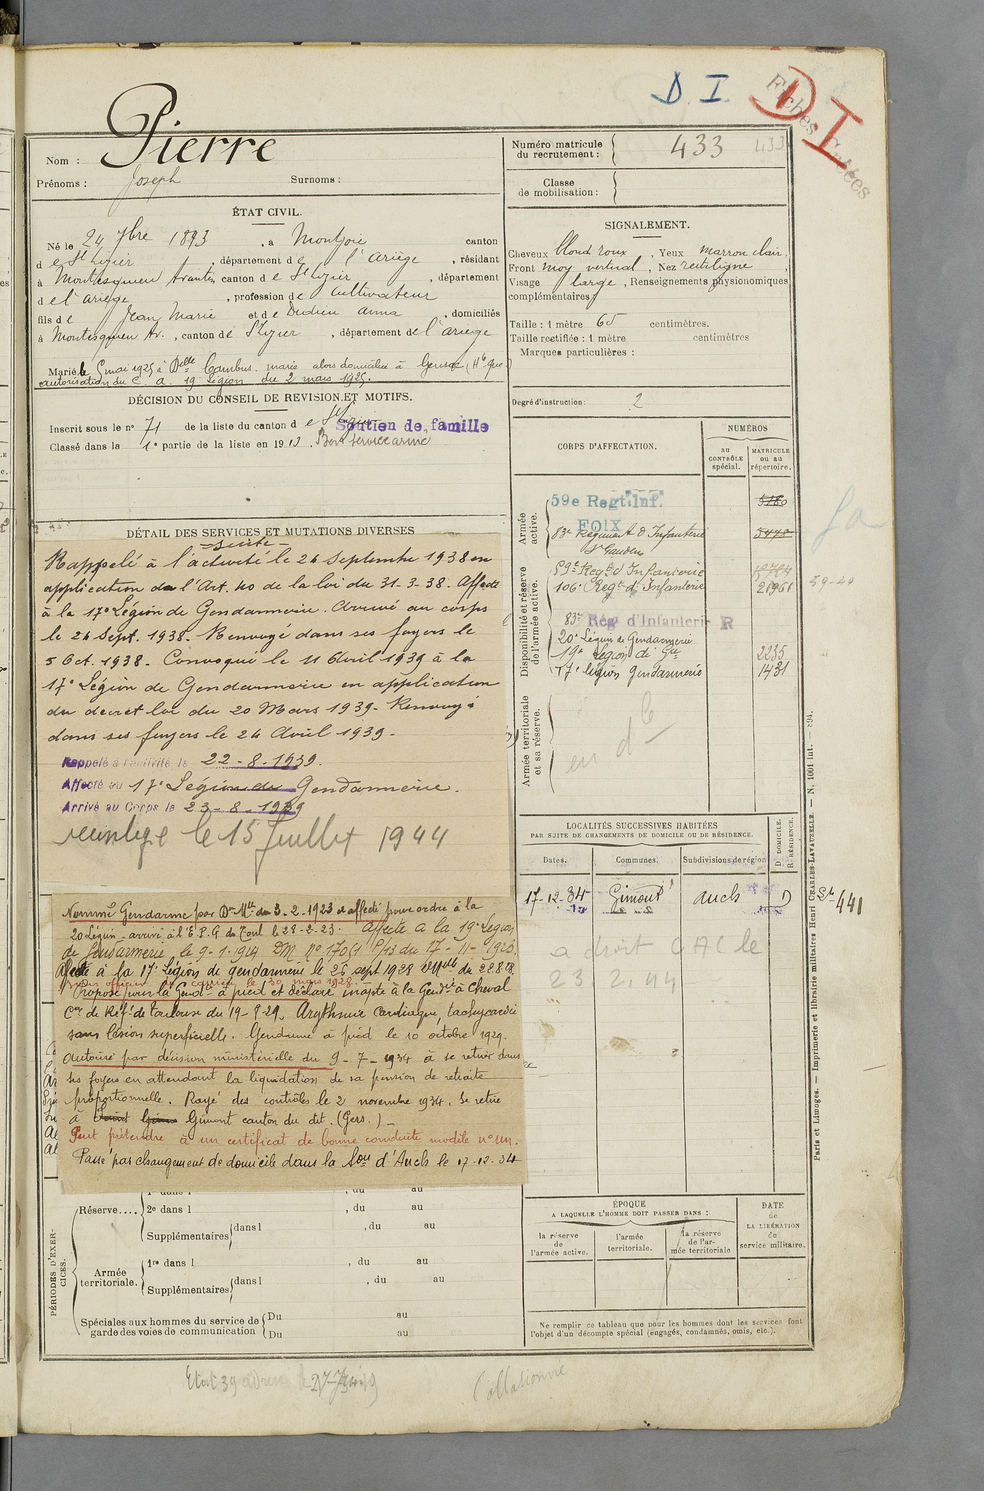 D. I.
D I
Fiches
Pierre
Nom :
Prénoms : Joseph Surnoms :
Numéro matricule du recrutement : 433
Classe de mobilisation :
ÉTAT CIVIL.
Né le 24 7bre 1893, à Montjoie canton
de St Lizier, département de l'Ariège, résidant
à Montesquieu Avantès canton de St Lizier, département
de l'ariège, profession de Cultivateur
fils de Jean Marie et de Dedieu anna, domiciliés
à Montesquieu Av., canton de St Lizier, département de l'ariège
Marié le 5 mai 1925 à Delle Cambus marie alors domiciliée à
autorisation du C. a. 19 légion du 2 mars 1925.
SIGNALEMENT.
Cheveux blond roux, Yeux marron clair,
Front moy vertical, Nez rectiligne,
Visage large, Renseignements physionomiques
complémentaires :
Taille : 1 mètre 65 centimètres.
Taille rectifiée : 1 mètre centimètres
Marques particulières :
Degré d'instruction : 2
DÉCISION DU CONSEIL DE REVISION ET MOTIFS.
Inscrit sous le n° 71 de la liste du canton de
Soutien de famille
Classé dans le 1e partie de la liste en 1913. Bon service armé
CORPS D'AFFECTATION.
NUMÉROS
au CONTRÔLE spécial.
MATRICULE ou au répertoire.
Armée active.
59e Regt. Inf. 5180
FOIX
83e Régiment d'Infanterie
St Gaudens
Disponibilité et réserve de l'armée active.
59e Regt d'Infanterie
106e Regt d'Infanterie 21961
83e Rég d'Infanterie R
20e Légion de Gendarmerie
19e Légion de Gie 2235
17e légion Gendarmerie 1431
59-40
Armée territoriale et sa réserve.
DÉTAIL DES SERVICES ET MUTATIONS DIVERSES
- suite -
Rappelé à l'activité le 24 Septembre 1938 en
application de l'Art. 40 de la loi du 31-3-38. Affecté
à la 17e Légion de Gendarmerie. Arrivé au corps
le 24 Sept. 1938. Renvoyé dans ses foyers le
5 Oct. 1938. Convoqué le 11 Avril 1939 à la
17e Légion de Gendarmerie en application
du décret loi du 20 Mars 1939. Renvoyé
dans ses foyers le 24 Avril 1939.
Rappelé à l'activité le 22-8-1939.
Affecté au 17e Légion de Gendarmerie.
Arrivé au Corps le 23-8-1939
le 15 Juillet 1944
Nommé Gendarme par Don Mlle du 3-2-1923 et affecté pour ordre à la
20 Légion - arrivé à l'E.P.G de Toul le 28-2-23. Affecté à la 19e Légion
de Gendarmerie le 9-1-1924 DM No 17061 P/13 du 17-11-1923.
Affecté à la 17e Légion de gendarmerie le 26 sept 1928
Proposé pour la Gend. à pied et déclaré inapte à la Gendie à Cheval
Con de Réfe de Toulouse du 19-8-29. Arythmie Cardiaque, tachycardie
sans lésion superficielle. Gendarme à pied le 10 octobre 1929.
Autorisé par décision ministérielle du 9-7-1934 à se retirer dans
ses foyers en attendant la liquidation de sa pension de retraite
proportionnelle. Rayé des contrôles le 2 novembre 1934. Se retire
à Gimont canton du dit. (Gers.)
Peut prétendre à un certificat de bonne conduite modèle n° un.
Passé par changement de domicile dans la Son d'Auch le 17-12-34
LOCALITÉS SUCCESSIVES HABITÉES
PAR SUITE DE CHANGEMENTS DE DOMICILE OU DE RÉSIDENCE.
Dates. Communes. Subdivisions de région
D. DOMICILE. R. RÉSIDENCE.
17-12-34 Gimont Auch D
441
a droit CAC le
23.2.44
PÉRIODES D'EXERCICES.
Réserve....
1re dans l , du au
2e dans l , du au
Supplémentaires dans l , du au
Armée territoriale.
1re dans l , du au
Supplémentaires dans l , du au
Spéciales aux hommes du service de garde des voies de communication
Du au
Du au
ÉPOQUE
A LAQUELLE L'HOMME DOIT PASSER DANS :
la réserve de l'armée active.
l'armée territoriale.
la réserve de l'armée territoriale
DATE de LA LIBÉRATION de service militaire.
Ne remplir ce tableau que pour les hommes dont les services font
l'objet d'un décompte spécial (engagés, condamnés, omis, etc.).
Paris et Limoges. — Imprimerie et librairie militaires Henri CHARLES-LAVAUZELLE. — N. 1001 int. — 894.
Collationné